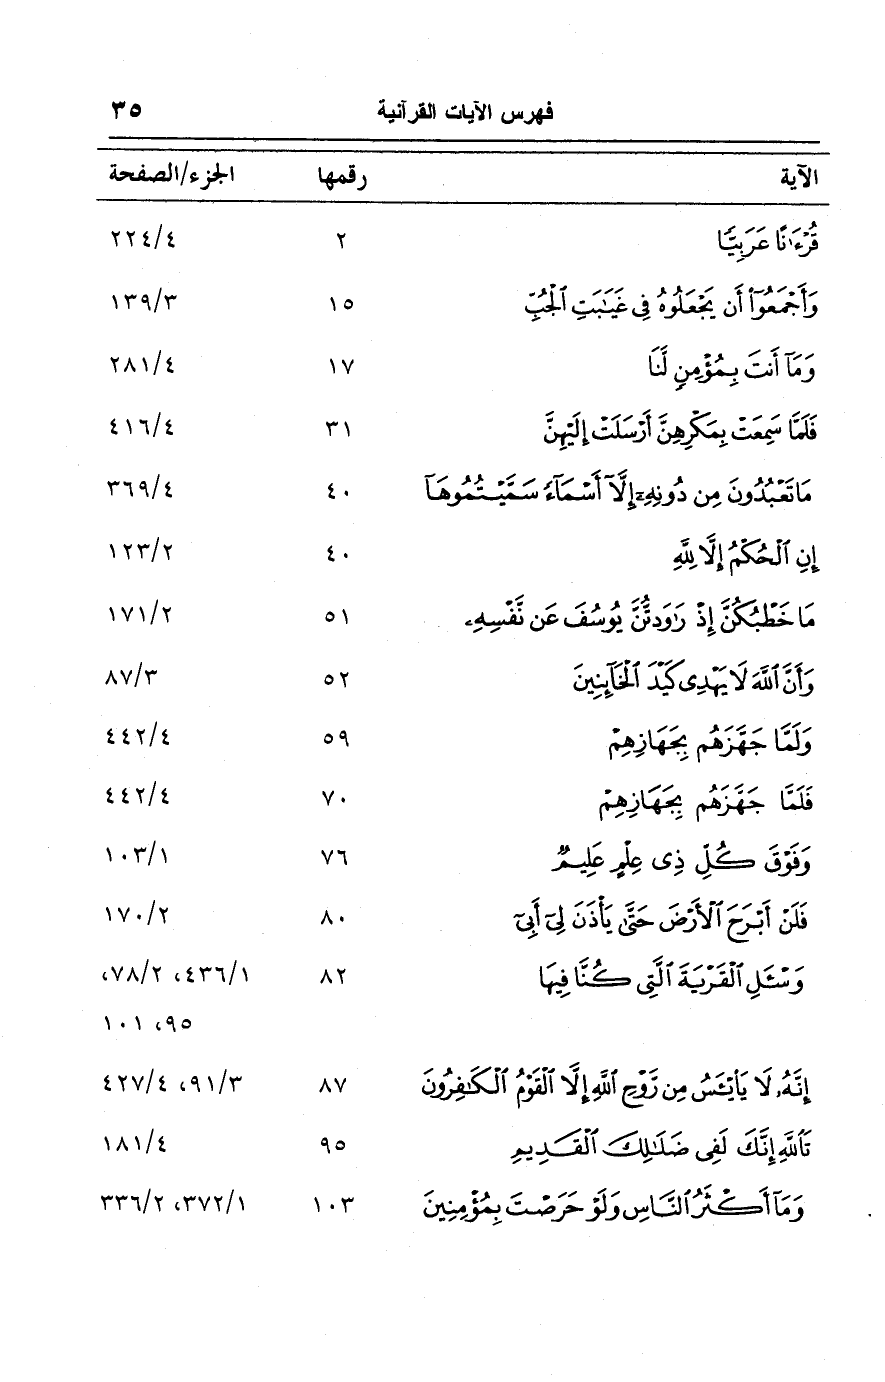 فهرس الآيات القرآنية ٣٥
الآية رقمها الجزء/الصفحة
قُرْءَٰنًا عَرَبِيًّا ٢ ٢٢٤/٤
وَأَجْمَعُوٓا۟ أَن يَجْعَلُوهُ فِى غَيَٰبَتِ ٱلْجُبِّ ١٥ ١٣٩/٣
وَمَآ أَنتَ بِمُؤْمِنٍ لَّنَا ١٧ ٢٨١/٤
فَلَمَّا سَمِعَتْ بِمَكْرِهِنَّ أَرْسَلَتْ إِلَيْهِنَّ ٣١ ٤١٦/٤
مَا تَعْبُدُونَ مِن دُونِهِۦٓ إِلَّآ أَسْمَآءً سَمَّيْتُمُوهَآ ٤٠ ٣٦٩/٤
إِنِ ٱلْحُكْمُ إِلَّا لِلَّهِ ٤٠ ١٢٣/٢
مَا خَطْبُكُنَّ إِذْ رَٰوَدتُّنَّ يُوسُفَ عَن نَّفْسِهِۦ ٥١ ١٧١/٢
وَأَنَّ ٱللَّهَ لَا يَهْدِى كَيْدَ ٱلْخَآئِنِينَ ٥٢ ٨٧/٣
وَلَمَّا جَهَّزَهُم بِجَهَازِهِمْ ٥٩ ٤٤٢/٤
فَلَمَّا جَهَّزَهُم بِجَهَازِهِمْ ٧٠ ٤٤٢/٤
وَفَوْقَ كُلِّ ذِى عِلْمٍ عَلِيمٌ ٧٦ ١٠٣/١
فَلَنْ أَبْرَحَ ٱلْأَرْضَ حَتَّىٰ يَأْذَنَ لِىٓ أَبِىٓ ٨٠ ١٧٠/٢
وَسْـَٔلِ ٱلْقَرْيَةَ ٱلَّتِى كُنَّا فِيهَا ٨٢ ٤٣٦/١، ٧٨/٢،
٩٥، ١٠١
إِنَّهُۥ لَا يَا۟يْـَٔسُ مِن رَّوْحِ ٱللَّهِ إِلَّا ٱلْقَوْمُ ٱلْكَٰفِرُونَ ٨٧ ٩١/٣، ٤٢٧/٤
تَٱللَّهِ إِنَّكَ لَفِى ضَلَٰلِكَ ٱلْقَدِيمِ ٩٥ ١٨١/٤
وَمَآ أَكْثَرُ ٱلنَّاسِ وَلَوْ حَرَصْتَ بِمُؤْمِنِينَ ١٠٣ ٣٧٢/١، ٣٣٦/٢